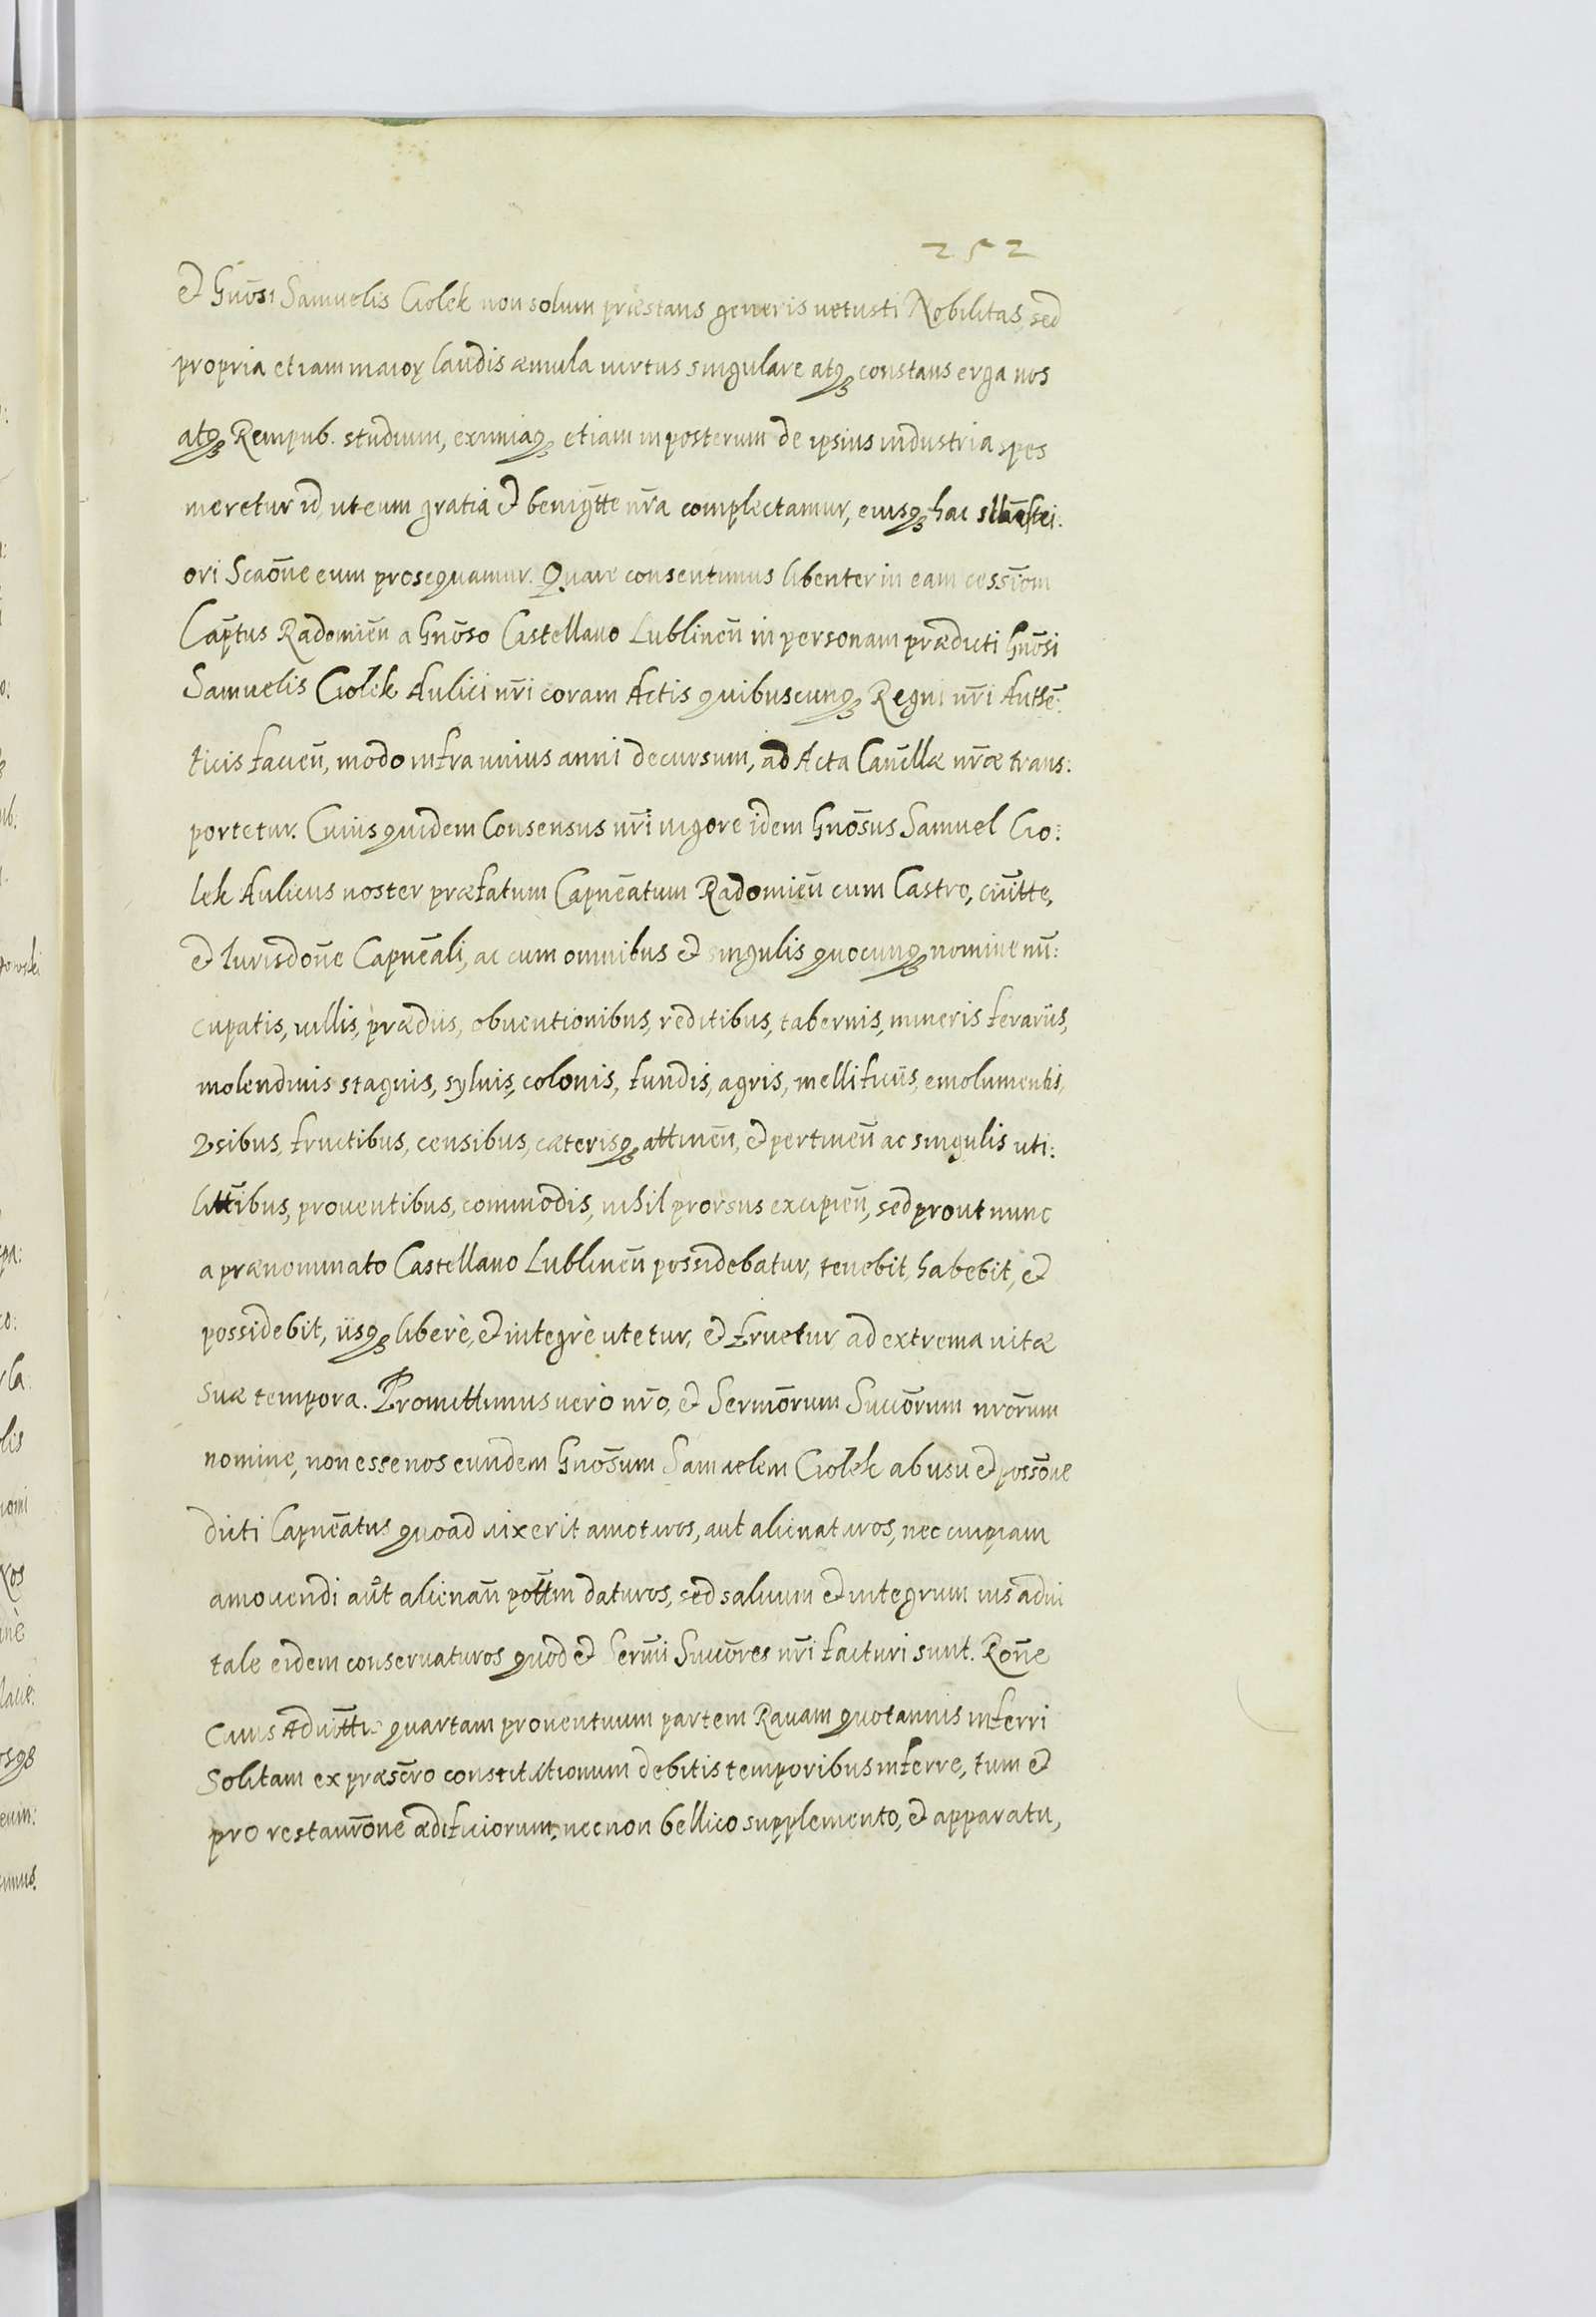 252
et Gnōsi Samuelis Ciolek non solum præstans generis vetusti Nobilitas, sed
propria etiam maioꝝ laudis æmula virtus singulare atqꝫ constans erga nos
atqꝫ Rempub. studium, eximiaqꝫ etiam in posterum de ipsius industria spes
meretur id, ut eum gratia et benigtte nr̄a complectamur, eiusqꝫ hac
ori Scaōne eum prosequamur. Quare consentimus libenter in eam cessīom
Capt̄us Radomien̄ a Gnōso Castellano Lublinen̄ in personam prædicti Gnōsi
Samuelis Ciolek Aulici nr̄i coram Actis quibuscunqꝫ Regni nr̄i Authē:
ticis facien̄, modo infra unius anni decursum, ad Acta Canc̄llæ nr̄æ trans:
portetur. Cuius quidem Consensus nr̄i vigore idem Gnōsus Samuel Cio:
lek Aulicus noster præfatum Capnēatum Radomien̄ cum Castro, civitte,
et Iurisdōne Capnēali, ac cum omnibus et singulis quocunqꝫ nomine nū:
cupatis, villis, prædiis, obventionibus, reditibus, tabernis, mineris ferariis,
molendinis stagnis, sylvis, colonis, fundis, agris, mellificiis, emolumentis,
Vsibus, fructibus, censibus, cæterisqꝫ attinen̄, et pertinen̄ ac singulis uti:
littibus, proventibus, commodis, nihil prorsus excipien̄, sed prout nunc
a prænominato Castellano Lublinen̄ possidebatur, tenebit, habebit, et
possidebit, iisqꝫ liberè, et integrè utetur, et fruetur ad extrema vitæ
suæ tempora. Promittimus verò nr̄o, et Sermōrum Succōrum nrōrum
nomine, non esse nos eundem Gnōsum Samuelem Ciolek ab usu et possōne
dicti Capnēatus quoad vixerit amoturos, aut alienaturos, nec cuipiam
amovendi aut alienan̄ pottm daturos, sed salvum et integrum ius advi
tale eidem conservaturos quod et Serm̄i Succōres nr̄i facturi sunt. Rōne
Cuius Advittis quartam proventuum partem Ravam quotannis inferri
Solitam ex præscro constitutionum debitis temporibus inferre, tum et
pro restaurōne ædificiorum, necnon bellico supplemento, et apparatu,